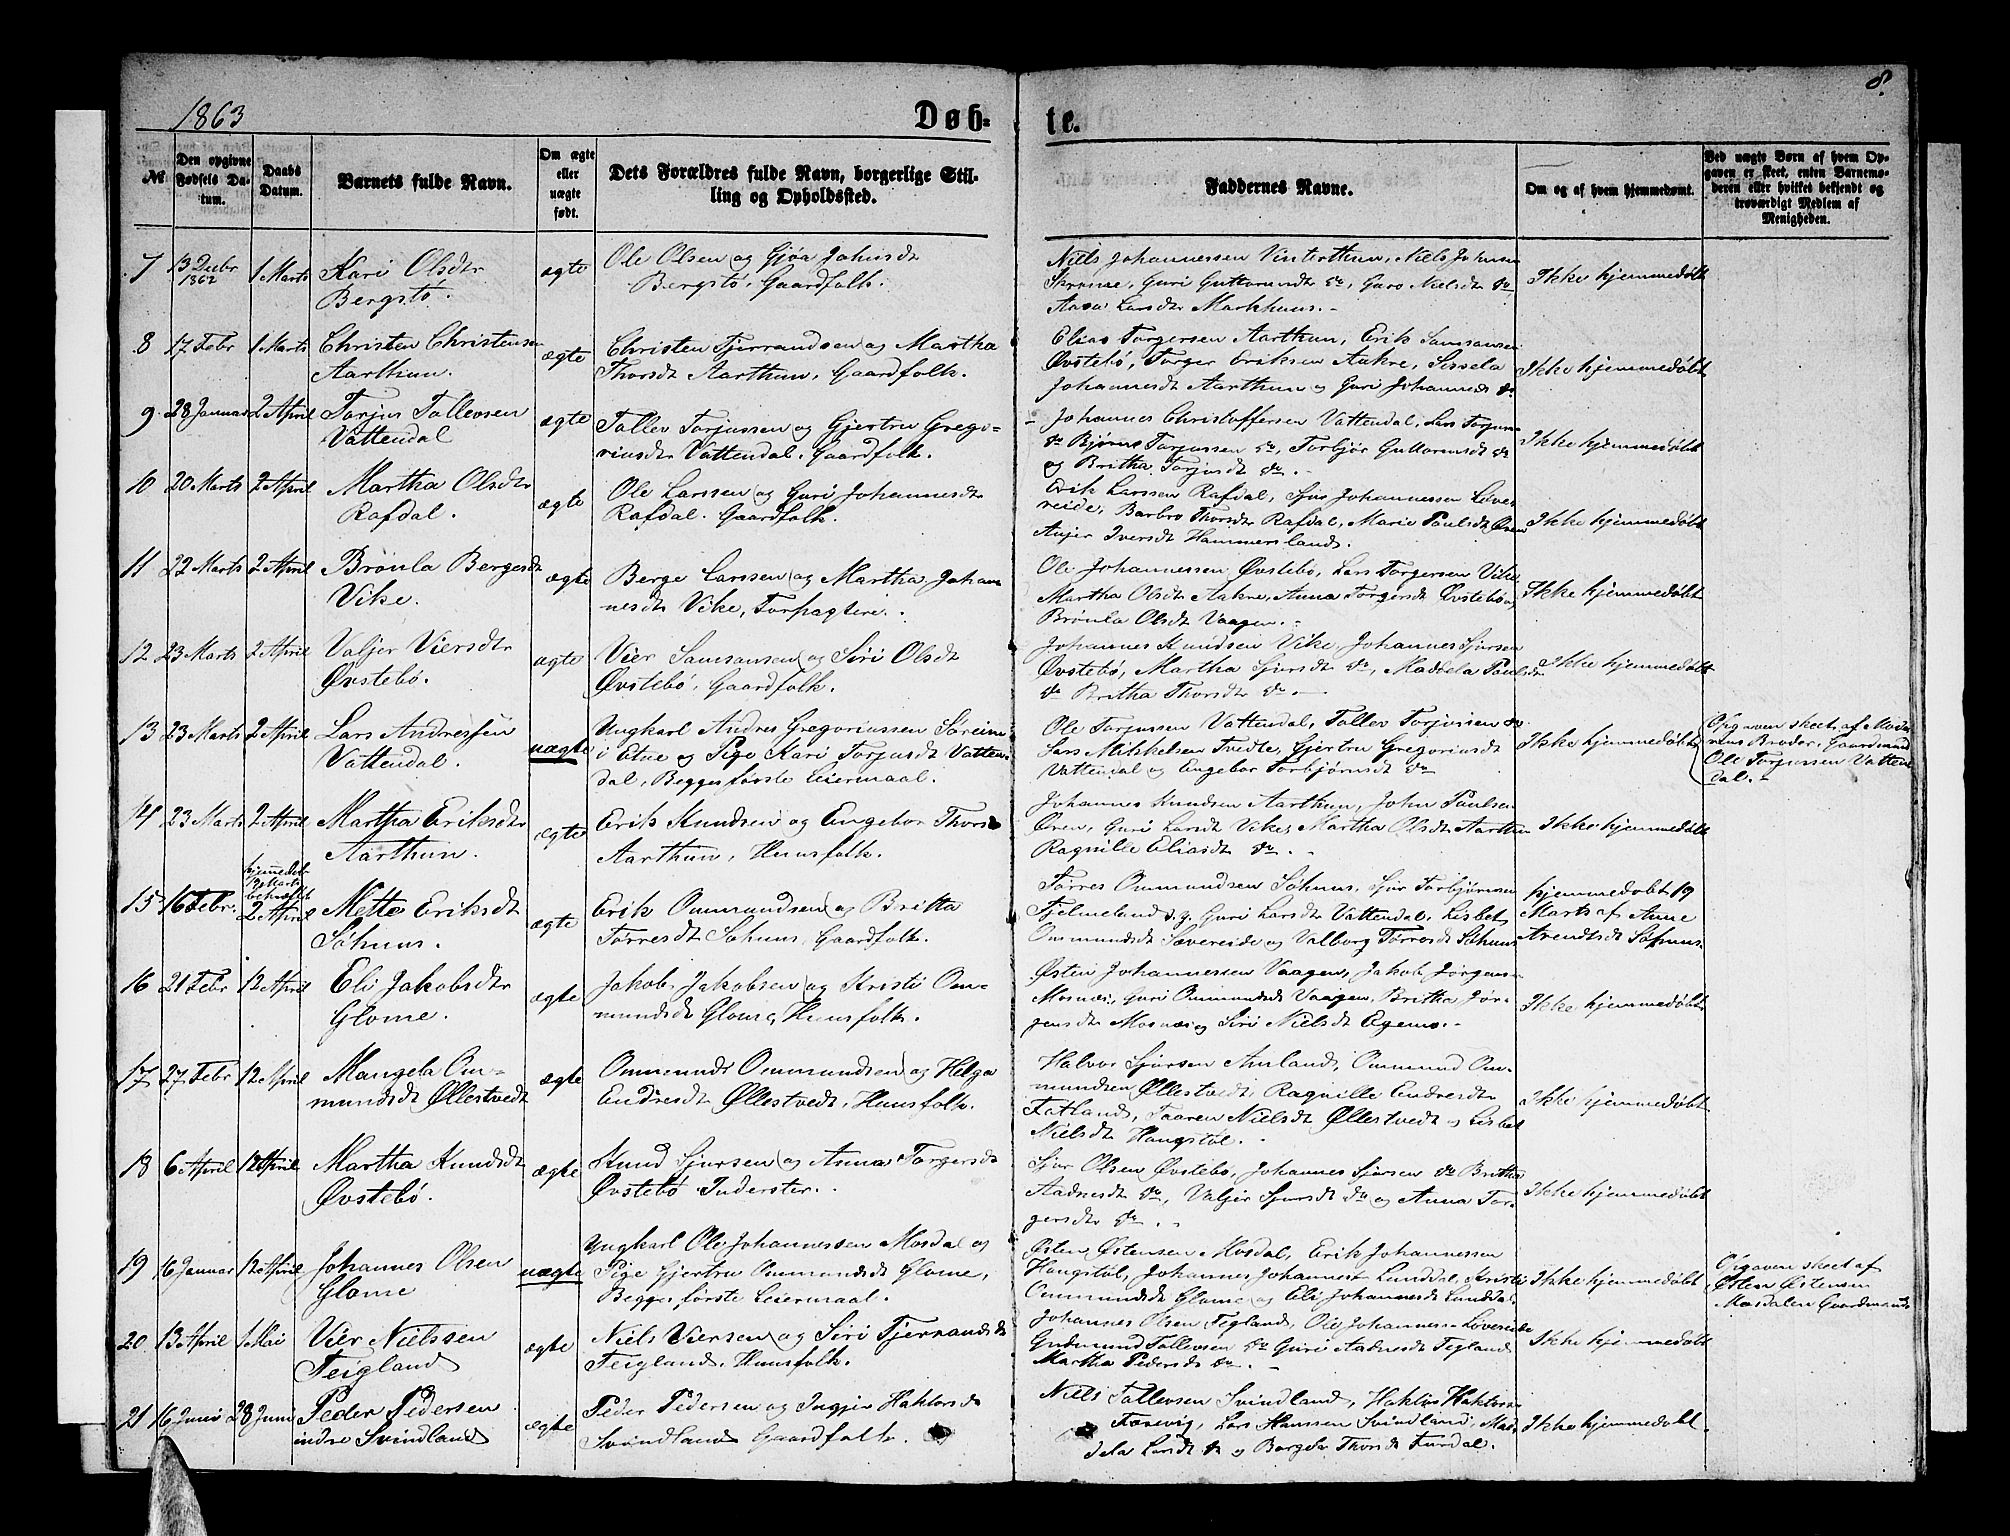 8.
1863
Døb-
te.
No
Den opgivne Fødsels Da-tum.
Daabs Datum.
Barnets fulde Navn.
Om ægte eller uægte født.
Dets Forældres fulde Navn, borgerlige Stil-
ling og Opholdssted.
Faddernes Navne.
Om og af hvem hjemmedømt.
Ved uægte Børn af hvem Op-
gaven er skeet, enten Barnemo-
deren eller hvilket bekjendt og
troværdigt Medlem af
Menigheden.
7 13 Decbr 1862 1 Marts Kari Olsdtr
Bergstø.
ægte
Ole Olsen og Gjøa Johnsdt
Bergstø, Gaardfolk.
Niels Johannessen Vinterthun, Niels Johnsen
Guri Guttormsdt do, Guro Nielsdt do
Aasa Larsdt Markhuus.
Ikke hjemmedøbt
8 17 Febr 1 Marts Christen Christensen
Aarthun.
ægte
Christen Tjerrandsen og Martha
Thorsdt Aarthun, Gaardfolk.
Elias Torgersen Aarthun, Erik Samsonsen
Øvstebø, Torger Eriksen Aakre, Sissela
Johannesdt Aarthun og Guri Johannesdt do
Ikke hjemmedøbt
9 28 Januar 2 April Torjus Tollevsen
Vattendal
ægte
Tollev Torjussen og Gjertru Grego-
riusdt Vattendal, Gaardfolk.
Johannes Christoffersen Vattendal, Lars Torjus-
do Bjørne Torjussen do, Torbjør Guttormsdt do
og Britha Torjusdt do.
Ikke hjemmedøbt
10 20 Marts 2 April Martha Olsdtr
Rafdal.
ægte
Ole Larssen og Guri Johannesdt
Rafdal. Gaardfolk.
Erik Larssen Rafdal, Sjur Johannessen Løve-
reide, Barbro Thorsdt Rafdal, Marie Paulsdt Øren
Iversdt Hammersland.
Ikke hjemmedøbt
11 22 Marts 2 April Brønla Bergesdt
Vike.
ægte
Berge Larssen og Martha Johan-
nesdt Vike, Forpagtere.
Ole Johannessen Øvstebø, Lars Torgersen Vike,
Martha Olsdt Aakre, Anna Torgersdt Øvstebø og
Brønla Olsdt Vaagen.
Ikke hjemmedøbt
12 23 Marts 2 April Valjer Viersdtr
Øvstebø.
ægte
Vier Samsonsen og Siri Olsdt
Øvstebø, Gaardfolk.
Johannes Knudsen Vike, Johannes Sjursen
Øvstebø, Martha Sjursdt do, Maddela Paulsdt
do Britha Thorsdt do
Ikke hjemmedøbt
13 23 Marts 2 April Lars Andressen
Vattendal.
uægte
Ungkarl Andres Gregoriussen Søreim
i Etne og Pige Kari Torjusdt Vatten-
dal, Begges første Leiermaal.
Ole Torjussen Vattendal, Tollev Torjussen do
Lars Mikkelsen Tvedte, Gjertru Gregoriusdt
Vattendal og Engebor Torbjørnsdt do
Ikke hjemmedøbt
Opgaven skeet af Mode-
rens Broder, Gaardmand
Ole Torjussen Vatten-
dal.
14 23 Marts 2 April Martha Eriksdtr
Aarthun.
ægte
Erik Knudsen og Engebor Thorsd
Aarthun, Huusfolk.
Johannes Knudsen Aarthun, John Paulsen
Øren, Guri Larsdt Vike, Martha Olsdt Aarthun
Ragnille Eliasdt do.
Ikke hjemmedøbt
15 16 Febr. hjemmedøbt 19 Marts bekræftet 2 April Mette Eriksdt
Søhuus.
ægte
Erik Ommundsen og Britha
Tørresdt Søhuus, Gaardfolk.
Tørres Ommundsen Søhuus, Sjur Torbjørnsen
Fjelmeland Guri Larsdt Vattendal, Lisbet
Ommundsdt Sævereide og Valborg Tørresdt Søhuus
hjemmedøbt 19
Marts af Anne
Arendtsdt Søhuus.
16 21 Febr 12 April Eli Jakobsdtr
Glome.
ægte
Jakob Jakobsen og Kristi Om-
mundsdt Glome, Huusfolk.
Østen Johannessen Vaagen, Jakob Jørgens-
Mosnæs, Guri Ommundsdt Vaagen, Britha Jør-
gensdt Mosnæs og Siri Nielsdt Egenes.
Ikke hjemmedøbt
17 27 Febr 12 April Mangela Om-
mundsdt Øllestvedt
ægte
Ommund Ommundsen og Helga
Endresdt Øllestvedt, Huusfolk.
Halvor Sjursen Amland, Ommund Om-
mundsen Øllestvedt, Ragnille Endresdt
Fatland, Taaren Nielsdt Øllestvedt og Lisbet
Nielsdt Haugstøl.
Ikke hjemmedøbt
18 6 April 12 April Martha Knudsdt
Øvstebø.
ægte
Knud Sjursen og Anna Torgersdt
Øvstebø Inderster.
Sjur Olsen Øvstebø, Johannes Sjursen do Britha
Aadnesdt do, Valjer Sjursdt do og Anna Tor-
gersdtr do.
Ikke hjemmedøbt
19 16 Januar 12 April Johannes Olsen
Glome
uægte
Ungkarl Ole Johannessen Mosdal og
Pige Gjertru Ommundsdt Glome,
Begges første Leiermaal.
Østen Østensen Mosdal, Erik Johannessen
Haugstøl, Johannes Johanness Lunddal, Kristi
Ommundsdt Glome og Eli Johannesdt Lunddal.
Ikke hjemmedøbt
Opgaven skeet af
Østen Østensen
Mosdalen Gaardmand
20 13 April 1 Mai Vier Nielssen
Teigland
ægte
Niels Viersen og Siri Tjerrandsdt
Teigland, Huusfolk.
Johannes Olsen Tegland, Ole Johanness Løvereide
Gudmund Tollevsen do Guri Aadnesdt Tegland
Martha Pedersdt do.
Ikke hjemmedøbt
21 16 Juni 28 Juni Peder Pedersen
indre Svindland
ægte
Peder Pedersen og Ingjer Haktorsdt
Svindland Gaardfolk.
Niels Tollevsen Svindland, Haktor Haktors-
Farevig, Lars Hanssen Svindland, Mad-
dela Larsdt do og Borgela Thorsdt Furdal.
Ikke hjemmedøbt.